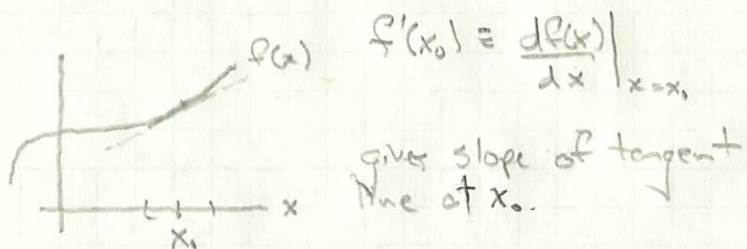 f(x)
x
x₀
f'(x₀) ≡ df(x)/dx |ₓ₌ₓ₀
gives slope of tangent
line at x₀.